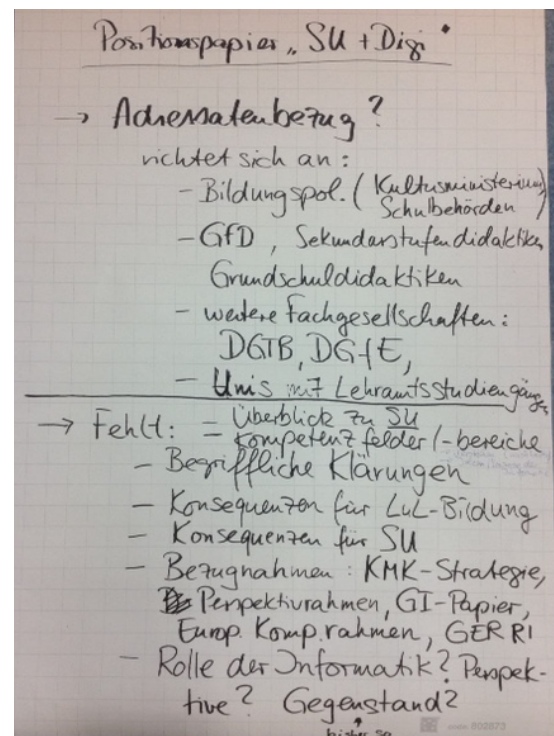 Positionspapier „SU + Digi"
→ Adressatenbezug?
richtet sich an:
- Bildungspol. (Kultusministerium,
Schulbehörden)
- GfD, Sekundarstufendidaktiken,
Grundschuldidaktiken
- weitere Fachgesellschaften:
DGTB, DGfE,
- Unis mit Lehramtsstudiengänge,
→ Fehlt: = Überblick zu SU
= Kompetenzfelder/-bereiche
- Begriffliche Klärungen
- Konsequenzen für LuL-Bildung
- Konsequenzen für SU
- Bezugnahmen: KMK-Strategie,
Perspektivrahmen, GI-Papier,
Europ. Komp.rahmen, GERRI
- Rolle der Informatik? Perspek-
tive? Gegenstand?
↑
bisher so